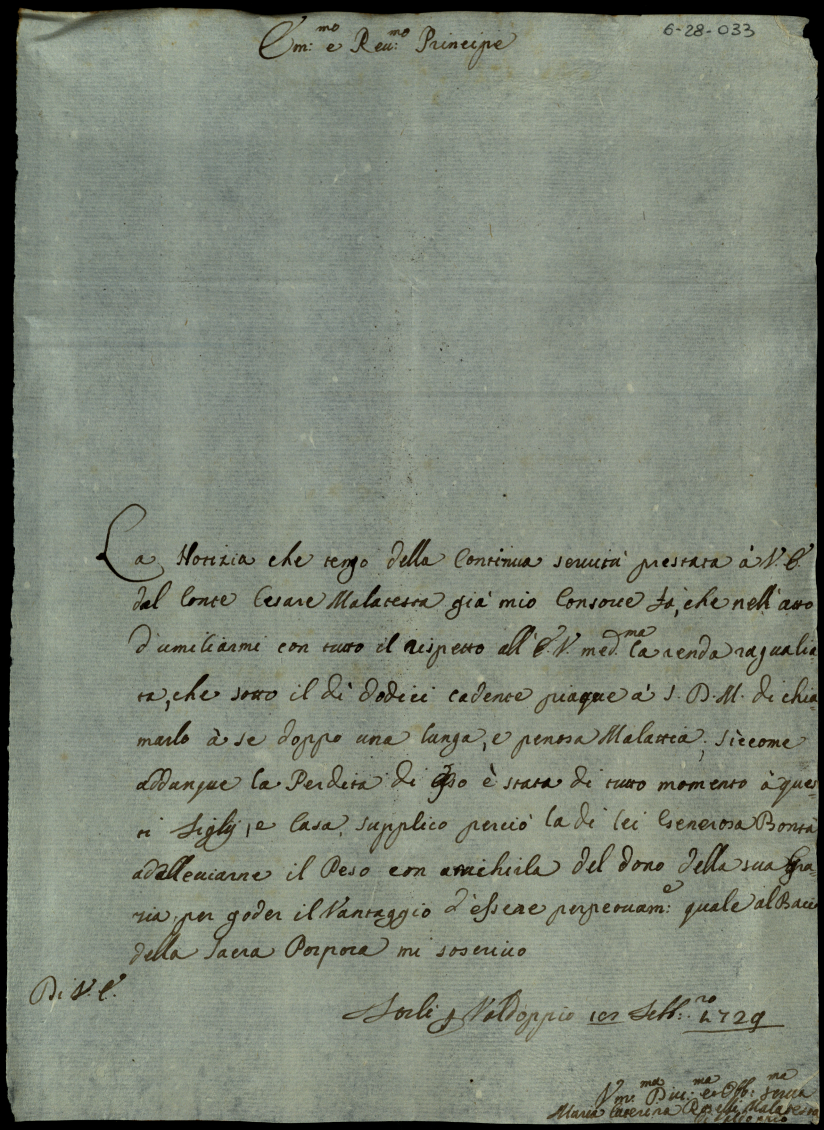 6-28-033
Em:mo e Reu:mo Principe
La Notizia che tengo della Continua seruitù prestata à V. E.
dal Conte Cesare Malatesta già mio Consorte fà, che nell'atto
d'umiliarmi con tutto il rispetto all'E. V. med:ma la renda raguaglia
ta, che sotto il dì dodici cadente piaque à S. D. M. di chia
marlo à se doppo una lunga, e penosa Malattia; siccome
addunque la Perdita di esso è stata di tutto momento à ques=
ti Figlj, e Casa, supplico perciò la di lei Generosa Bontà
ad alleuiarne il Peso con arrichirla del dono della sua Gra=
zia, per goder il Vantaggio d'essere perpetuam:e quale al Bacio
della Sacra Porpora mi soscriuo
Di V. E.
Forlì p Valdoppio Febb:ro 1729
Vm:ma Diu:ma et Obb:ma Serua
Maria Caterina Malatesta